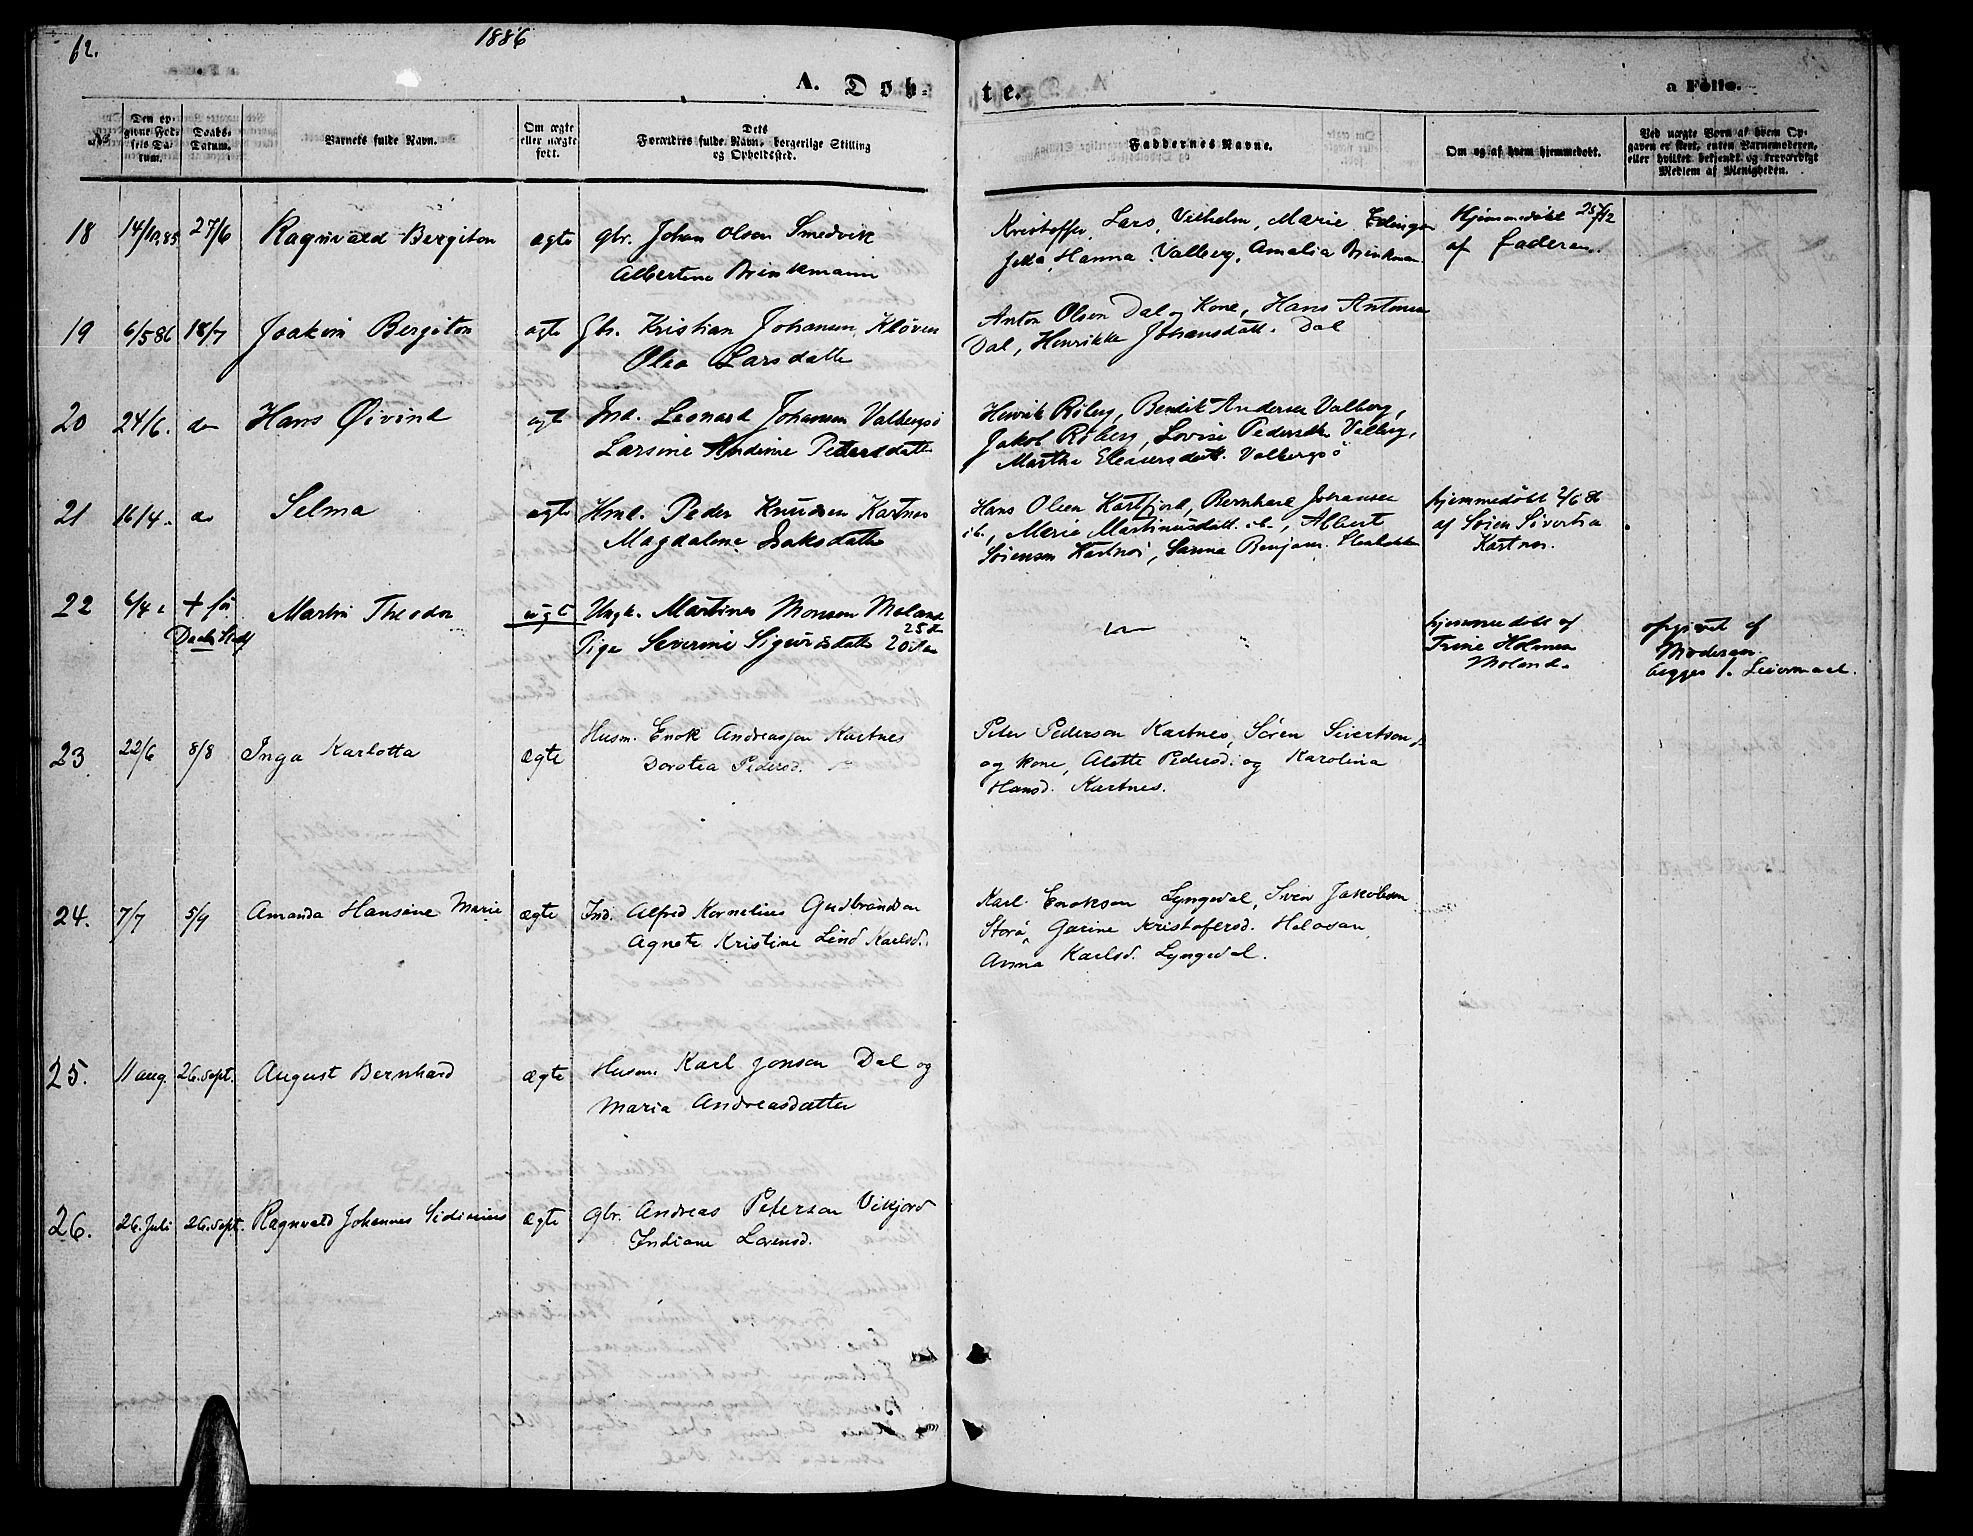 62.
1886
A. Døb-
te.
a Folio.
No.
Den op-
givne Fød-
sels Da-
tum.
Daabs-
Datum.
Barnets fulde Navn.
Om ægte
eller uægte
født.
Dets
Forældres fulde Navn, borgerlige Stilling
og Opholdssted.
Faddernes Navne.
Om og af hvem hjemmedøbt.
Ved uægte Børn af hvem Op-
gaven er skeet, enten Barnemoderen,
eller hvilket bekjendt og troværdigt
Medlem af Menigheden.
18 14/12 85 27/6 Ragnvald Bergiton ægte gbr. Johan Olsen Smedvik
Albertine Brinkmann
Kristoffer, Lars, Vilhelm, Marie
Hanna Valberg, Amalia Brinkman
Hjemmedøbt 25/12
af faderen.
19 6/5 86 18/7 Joakim Bergiton ægte Gbr. Kristian Johansen
Olea Larsdatter
Anton Olsen Dal og Kone, Hans Antonsen
Dal, Henrikke Johansdatt. Dal
20 24/6. do Hans Øivind ægt Ind. Leonard Johansen Valbergsø
Larsine Andine Pedersdatter
Henrik Røberg, Bendik Andersen Valberg,
Jakob Røberg, Lovise Pedersdtr Valberg,
Martha Eleasersdatt. Valbergsø
21 16/4. do Selma ægte Hmd. Peder Knudsen Kartnes
Magdalene Isaksdatter
Hans Olsen Kartfjord, Bernhard Johansen
ib., Marie Martinusdatt. ib., Albert
Sørensen Kartnes, Sanna Benjam.
hjemmedøbt 2/6 86
af Søren Sivertsen
Kartnes.
22 6/4 + før
Daab Sted
Martin Theodor uægt Ungk. Martines Monsen Moland
25 År
Pige Severine Sigurdsdatter 20 År
hjemmedøbt af
Trine Holmen
Moland.
opgivet af
Moderen.
begges 1. Leiermaal.
23 22/6 8/8 Inga Karlotta ægte Husm. Enok Andreassen Kartnes
Dorotea Pedersd.
Peter Pederson Kartnes, Søren Sivertson
og kone, Alette Pedersd. og Karolina
Hansd. Kartnes.
24. 7/7 5/9 Amanda Hansine Marie ægte Ind. Alfred Kornelius Gudbrandsen
Agnete Kristine Lind Karlsd.
Karl Enokson Lyngedal, Sven Jakobsen
Storå, Garine Kristofersd. Helosan,
Anna Karlsd. Lyngedal.
25. 11 aug. 26. sept. August Bernhard ægte Husm. Karl Jonson Dal og
Maria Andreasdatter
26. 26. Juli 26. sept. Ragnvald Johannes Sidinius ægte gbr. Andreas Peterson Vikjord
Indiane Lorensd.